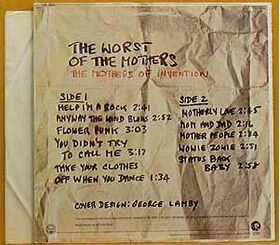 THE WORST
OF THE MOTHERS
THE MOTHERS OF INVENTION
SIDE 1
HELP I'M A ROCK 2:41
ANYWAY THE WIND BLOWS 2:52
FLOWER PUNK 3:03
YOU DIDN'T TRY
TO CALL ME 3:17
TAKE YOUR CLOTHES
OFF WHEN YOU DANCE 1:34
SIDE 2
MOTHERLY LOVE 2:45
MOM AND DAD 2:16
MOTHER PEOPLE 2:34
WOWIE ZOWIE 2:51
STATUS BACK
BABY 2:58
COVER DESIGN: GEORGE LAMBY